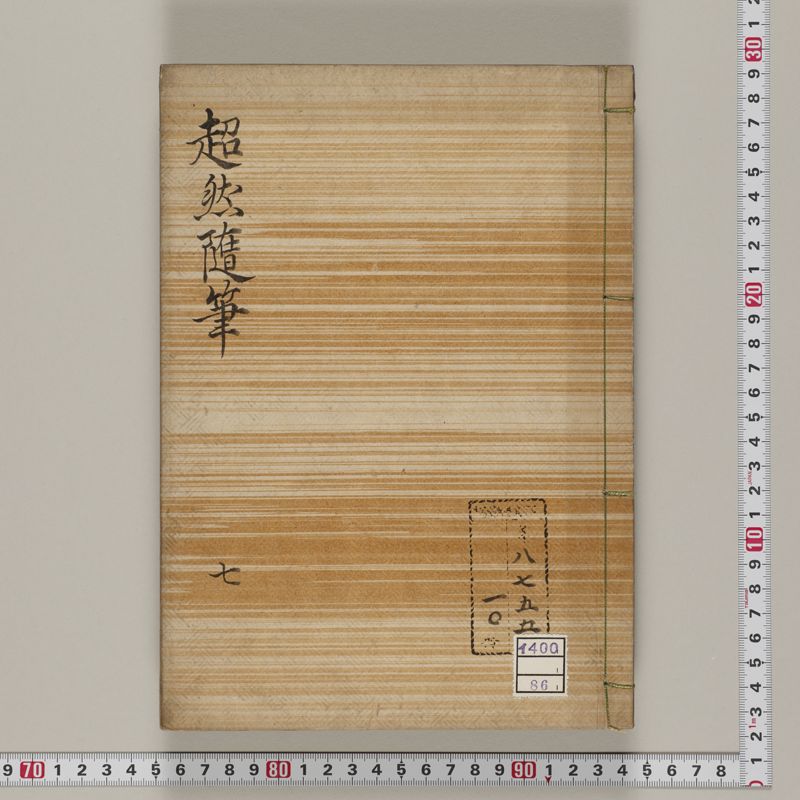 超然随筆
七
八七五五
一〇
1400
86
9 70 1 2 3 4 5 6 7 8 9 80 1 2 3 4 5 6 7 8 9 90 1 2 3 4 5 6 7 8
1 30 9 8 7 6 5 4 3 2 1 20 9 8 7 6 5 4 3 2 1 10 9 8 7 6 5 4 3 2
JAPAN
1m